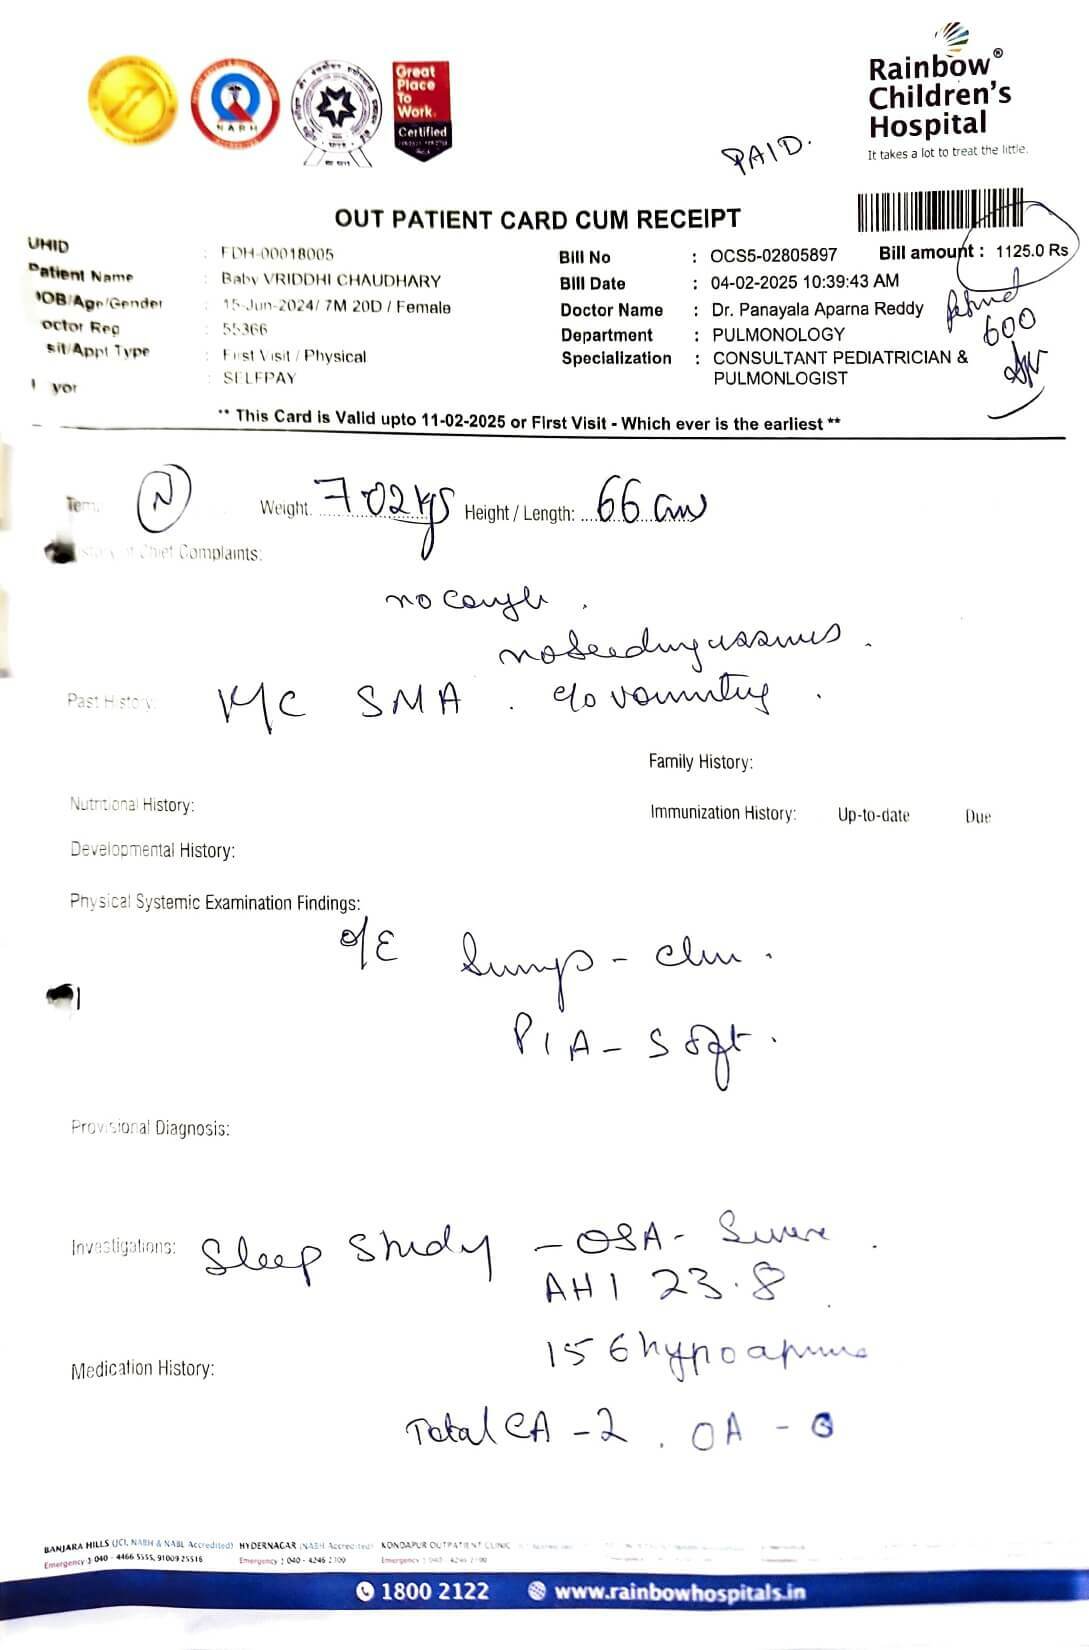 Great
Place
To
Work.
Certified
NABH
Rainbow®
Children's
Hospital
It takes a lot to treat the little.
PAID.
OUT PATIENT CARD CUM RECEIPT
UHID : FDH-00018005
Patient Name : Baby VRIDDHI CHAUDHARY
DOB/Age/Gender : 15-Jun-2024/ 7M 20D / Female
octor Reg : 55366
sit/Appt Type : First Visit / Physical
yor : SELFPAY
Bill No : OCS5-02805897
Bill amount : 1125.0 Rs
Bill Date : 04-02-2025 10:39:43 AM
Doctor Name : Dr. Panayala Aparna Reddy
Department : PULMONOLOGY
Specialization : CONSULTANT PEDIATRICIAN &
PULMONLOGIST
600
** This Card is Valid upto 11-02-2025 or First Visit - Which ever is the earliest **
Tem. N Weight. 7.02 kgs Height / Length: 66 cm
History of Chief Complaints:
no cough .
no feeding issues .
Past History: K/C SMA . c/o vomiting .
Family History:
Nutritional History:
Immunization History: Up-to-date Due
Developmental History:
Physical Systemic Examination Findings:
O/E Lungs - clear .
P/A - Soft .
Provisional Diagnosis:
Investigations: Sleep Study - OSA - Severe .
AHI 23.8
156 hypoapnea
Medication History:
Total CA - 2 . OA - 0
BANJARA HILLS (JCI, NABH & NABL Accredited) HYDERNAGAR (NABH Accredited) KONDAPUR OUTPATIENT CLINIC
Emergency : 040 - 4466 5555, 91009 25516 Emergency : 040 - 4246 2100 Emergency : 040 - 4246 2100
1800 2122 www.rainbowhospitals.in